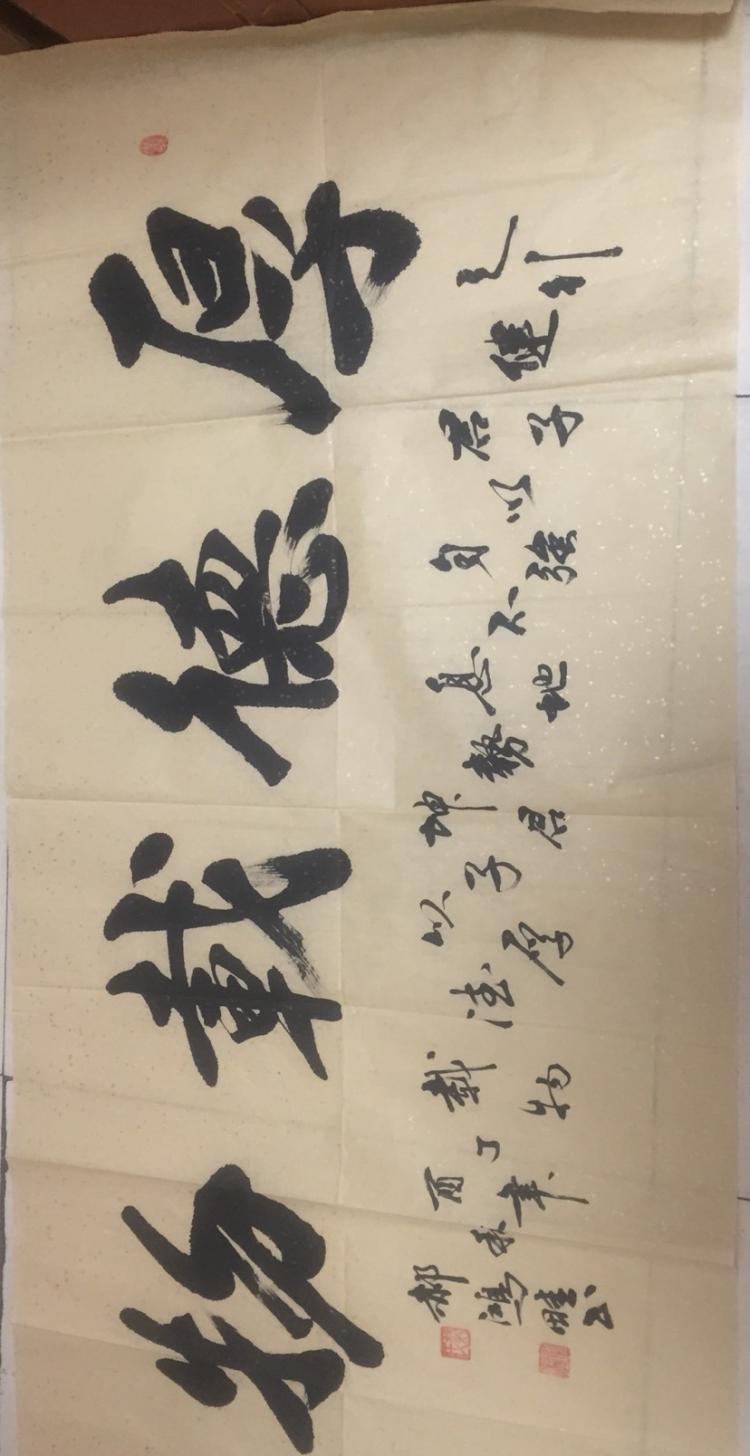 厚德載物
天行
健
君子
以
自強
不
息地
勢
坤君
子
以厚
德
載物
丁
酉年
秋
郝鴻书